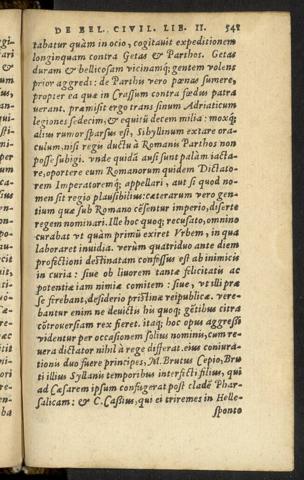 DE BEL. CIVIL. LIB. II. 548
tabatur quàm in ocio, cogitauit expeditionem
longinquam contra Getas & Parthos. Getas
duram & bellicosam vicinamq; gentem volens
prior aggredi: de Parthis vero pœnas sumere,
propter ea quæ in Crassum contra fœdus patra
uerant. præmisit ergo trans sinum Adriaticum
legiones sedecim, & equitũ decem milia: moxq;
alius rumor sparsus est, Sibyllinum extare ora-
culum, nisi regu ductu à Romanis Parthos non
posse subigi. vnde quidã ausi sunt palàm iacta-
re, oportere eum Romanorum quidem Dictato-
rem Imperatoremq; appellari, aut si quod no-
men sit regio plausibilius: cæterarum vero gen-
tium quæ sub Romano cẽsentur imperio, disertè
regem nominari. Ille hoc quoq; recusato, omnino
curabat vt quàm primũ exiret Vrbem, in qua
laboraret inuidia. verùm quatriduo ante diem
profectioni destinatam confossus est ab inimicis
in curia: siue ob liuorem tantæ felicitatis ac
potentiæ iam nimiæ comitem: siue, vt illi præ
se ferebant, desiderio pristinæ reipublicæ. vere-
bantur enim ne deuictis his quoq; gẽtibus citra
cõtrouersiam rex fieret. itaq; hoc opus aggressi
videntur per occasionem solius nominis, cum re-
uera dictator nihil à rege differat. eius coniura-
tionis duo fuere principes, M. Brutus Cepio, Bru
ti illius Syllanis temporibus interfecti filius, qui
ad Cæsarem ipsum confugerat post cladẽ Phar-
salicam: & C. Cassius, qui ei triremes in Helle-
sponto